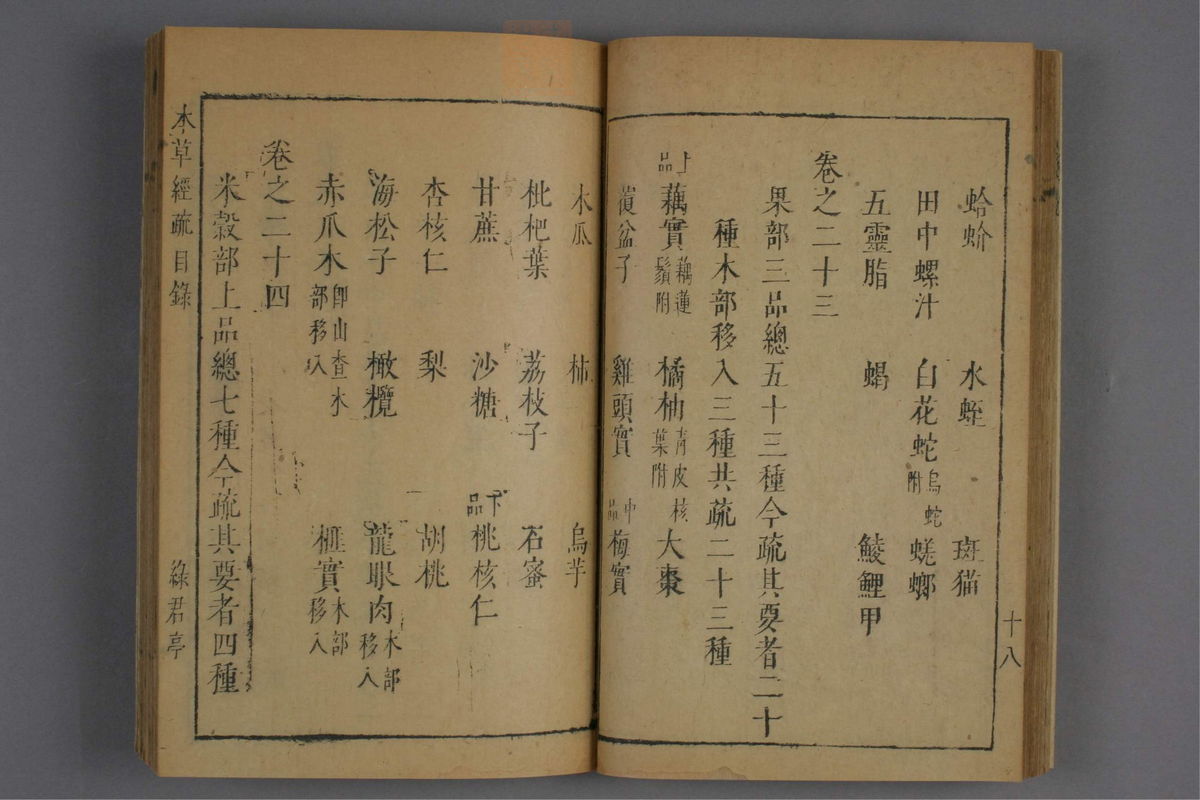 蛤蚧 水蛭 斑猫
田中螺汁 白花蛇烏蛇附 蜣螂
五靈脂 蝎 鯪鯉甲
卷之二十三
果部三品總五十三種今疏其要者二十
種木部移入三種共疏二十三種
上品 藕實藕蓮鬚附 橘柚青皮核葉附 大棗
覆盆子 雞頭實 中品 梅實
木瓜 柿 烏芋
枇杷葉 荔枝子 石蜜
甘蔗 沙糖 下品 桃核仁
杏核仁 梨 胡桃
海松子 橄欖 龍眼肉木部移入
赤爪木卽山查木部移入 榧實木部移入
卷之二十四
米穀部上品總七種今疏其要者四種
本草經疏 目錄 綠君亭
十八